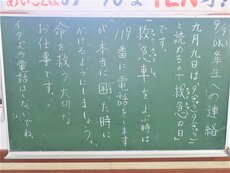 9/9(水)
年生への連絡
九月九日は
と読めるので「救急の日」
です。
「救急車」をよぶ時は
119番に電話をします
が、本当に困った時に
かけるようにしましょう。
命を救う大切な
お仕事です!
イタズラ電話はしないでね。